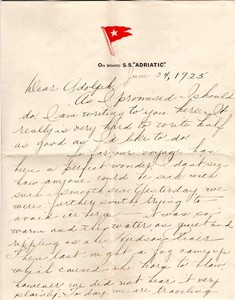 On Board S.S. "ADRIATIC"
June 24, 1925
Dear Adolph,
As I promised I should
do I am writing to you here. It
really is very hard to write half
as good as I'd like to do.
So far our voyage has
been a perfect wonder. I don't see
how anyone could be sick with
such a smooth sea. Yesterday we
were further south trying to
avoid ice bergs it was so
warm and the water as quiet and
rippling as the Hudson River
Then last night a fog came up
which caused the horn to blow
however we did not hear it very
plainly. To day we are traveling